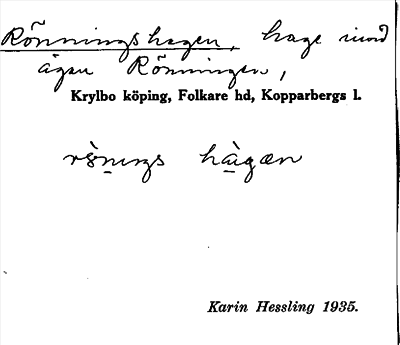 Rönningshagen, hage invid
ägan Rönningen,
Krylbo köping, Folkare hd, Kopparbergs l.
hàgæn
Karin Hessling 1935.